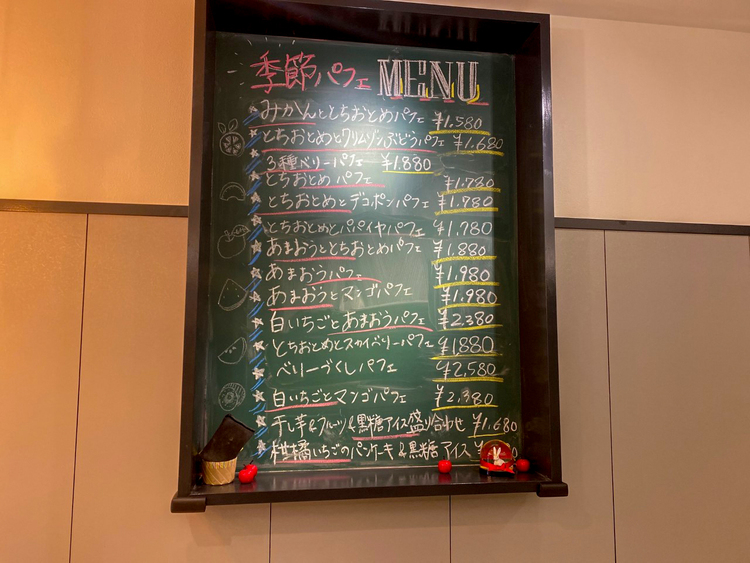 季節パフェ MENU
みかんととちおとめパフェ ¥1.580
とちおとめとクリムゾンぶどうパフェ ¥1.680
3種ベリーパフェ ¥1.880
とちおとめパフェ ¥1.780
とちおとめとデコポンパフェ ¥1.780
とちおとめとパパイヤパフェ ¥1.780
あまおうととちおとめパフェ ¥1.880
あまおうパフェ ¥1.980
あまおうとマンゴパフェ ¥1.980
白いちごとあまおうパフェ ¥2.380
とちおとめとスカイベリーパフェ ¥1880
ベリーづくしパフェ ¥2,580
白いちごとマンゴパフェ ¥2.380
干し芋&フルーツ&黒糖アイス盛り合わせ ¥1.680
柑橘いちごのパンケーキ&黒糖アイス